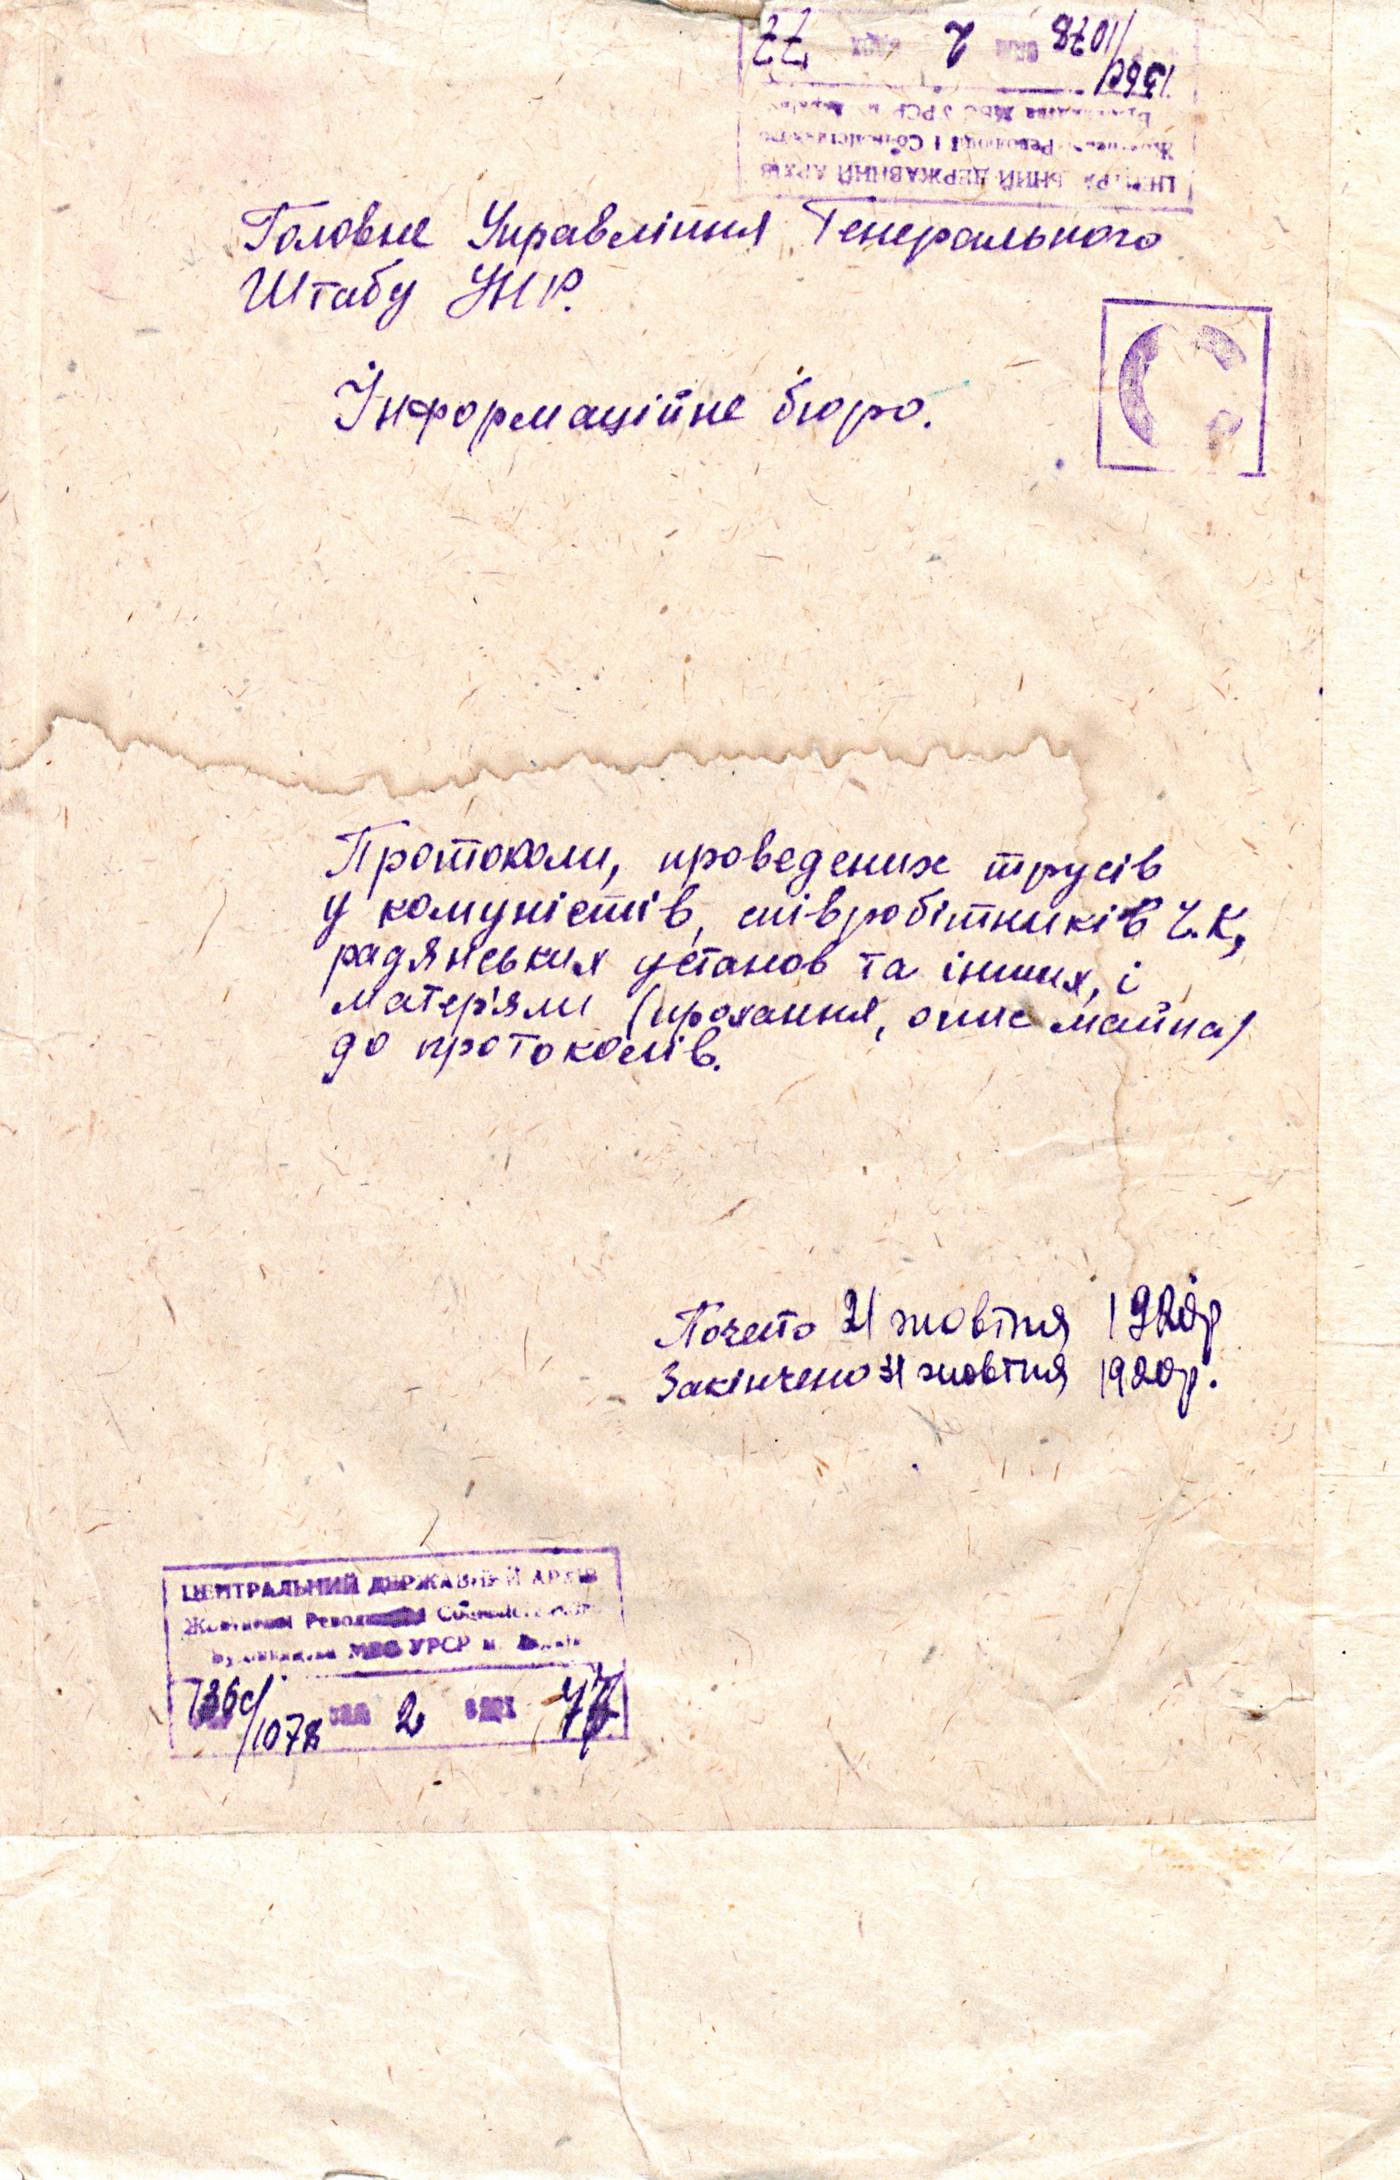 77 2 1078
136с/
ЦЕНТРАЛЬНИЙ ДЕРЖАВНИЙ АРХІВ
Жовтневої Революції і Соціалістичного
Будівництва МВС УРСР м. Харків
Головне Управління Генерального
Штабу УНР.
Інформаційне бюро.
Протоколи, проведених трусів
у комуністів, співробітників Ч.К,
радянських установ та інших, і
матер'яли (прохання, опис майна)
до протоколів.
Почато 21 жовтня 1920р
Закінчено 31 жовтня 1920р.
ЦЕНТРАЛЬНИЙ ДЕРЖАВНИЙ АРХІВ
Жовтневої Революції і Соціалістичного
Будівництва МВС УРСР м. Харків
136с/1078 2 77